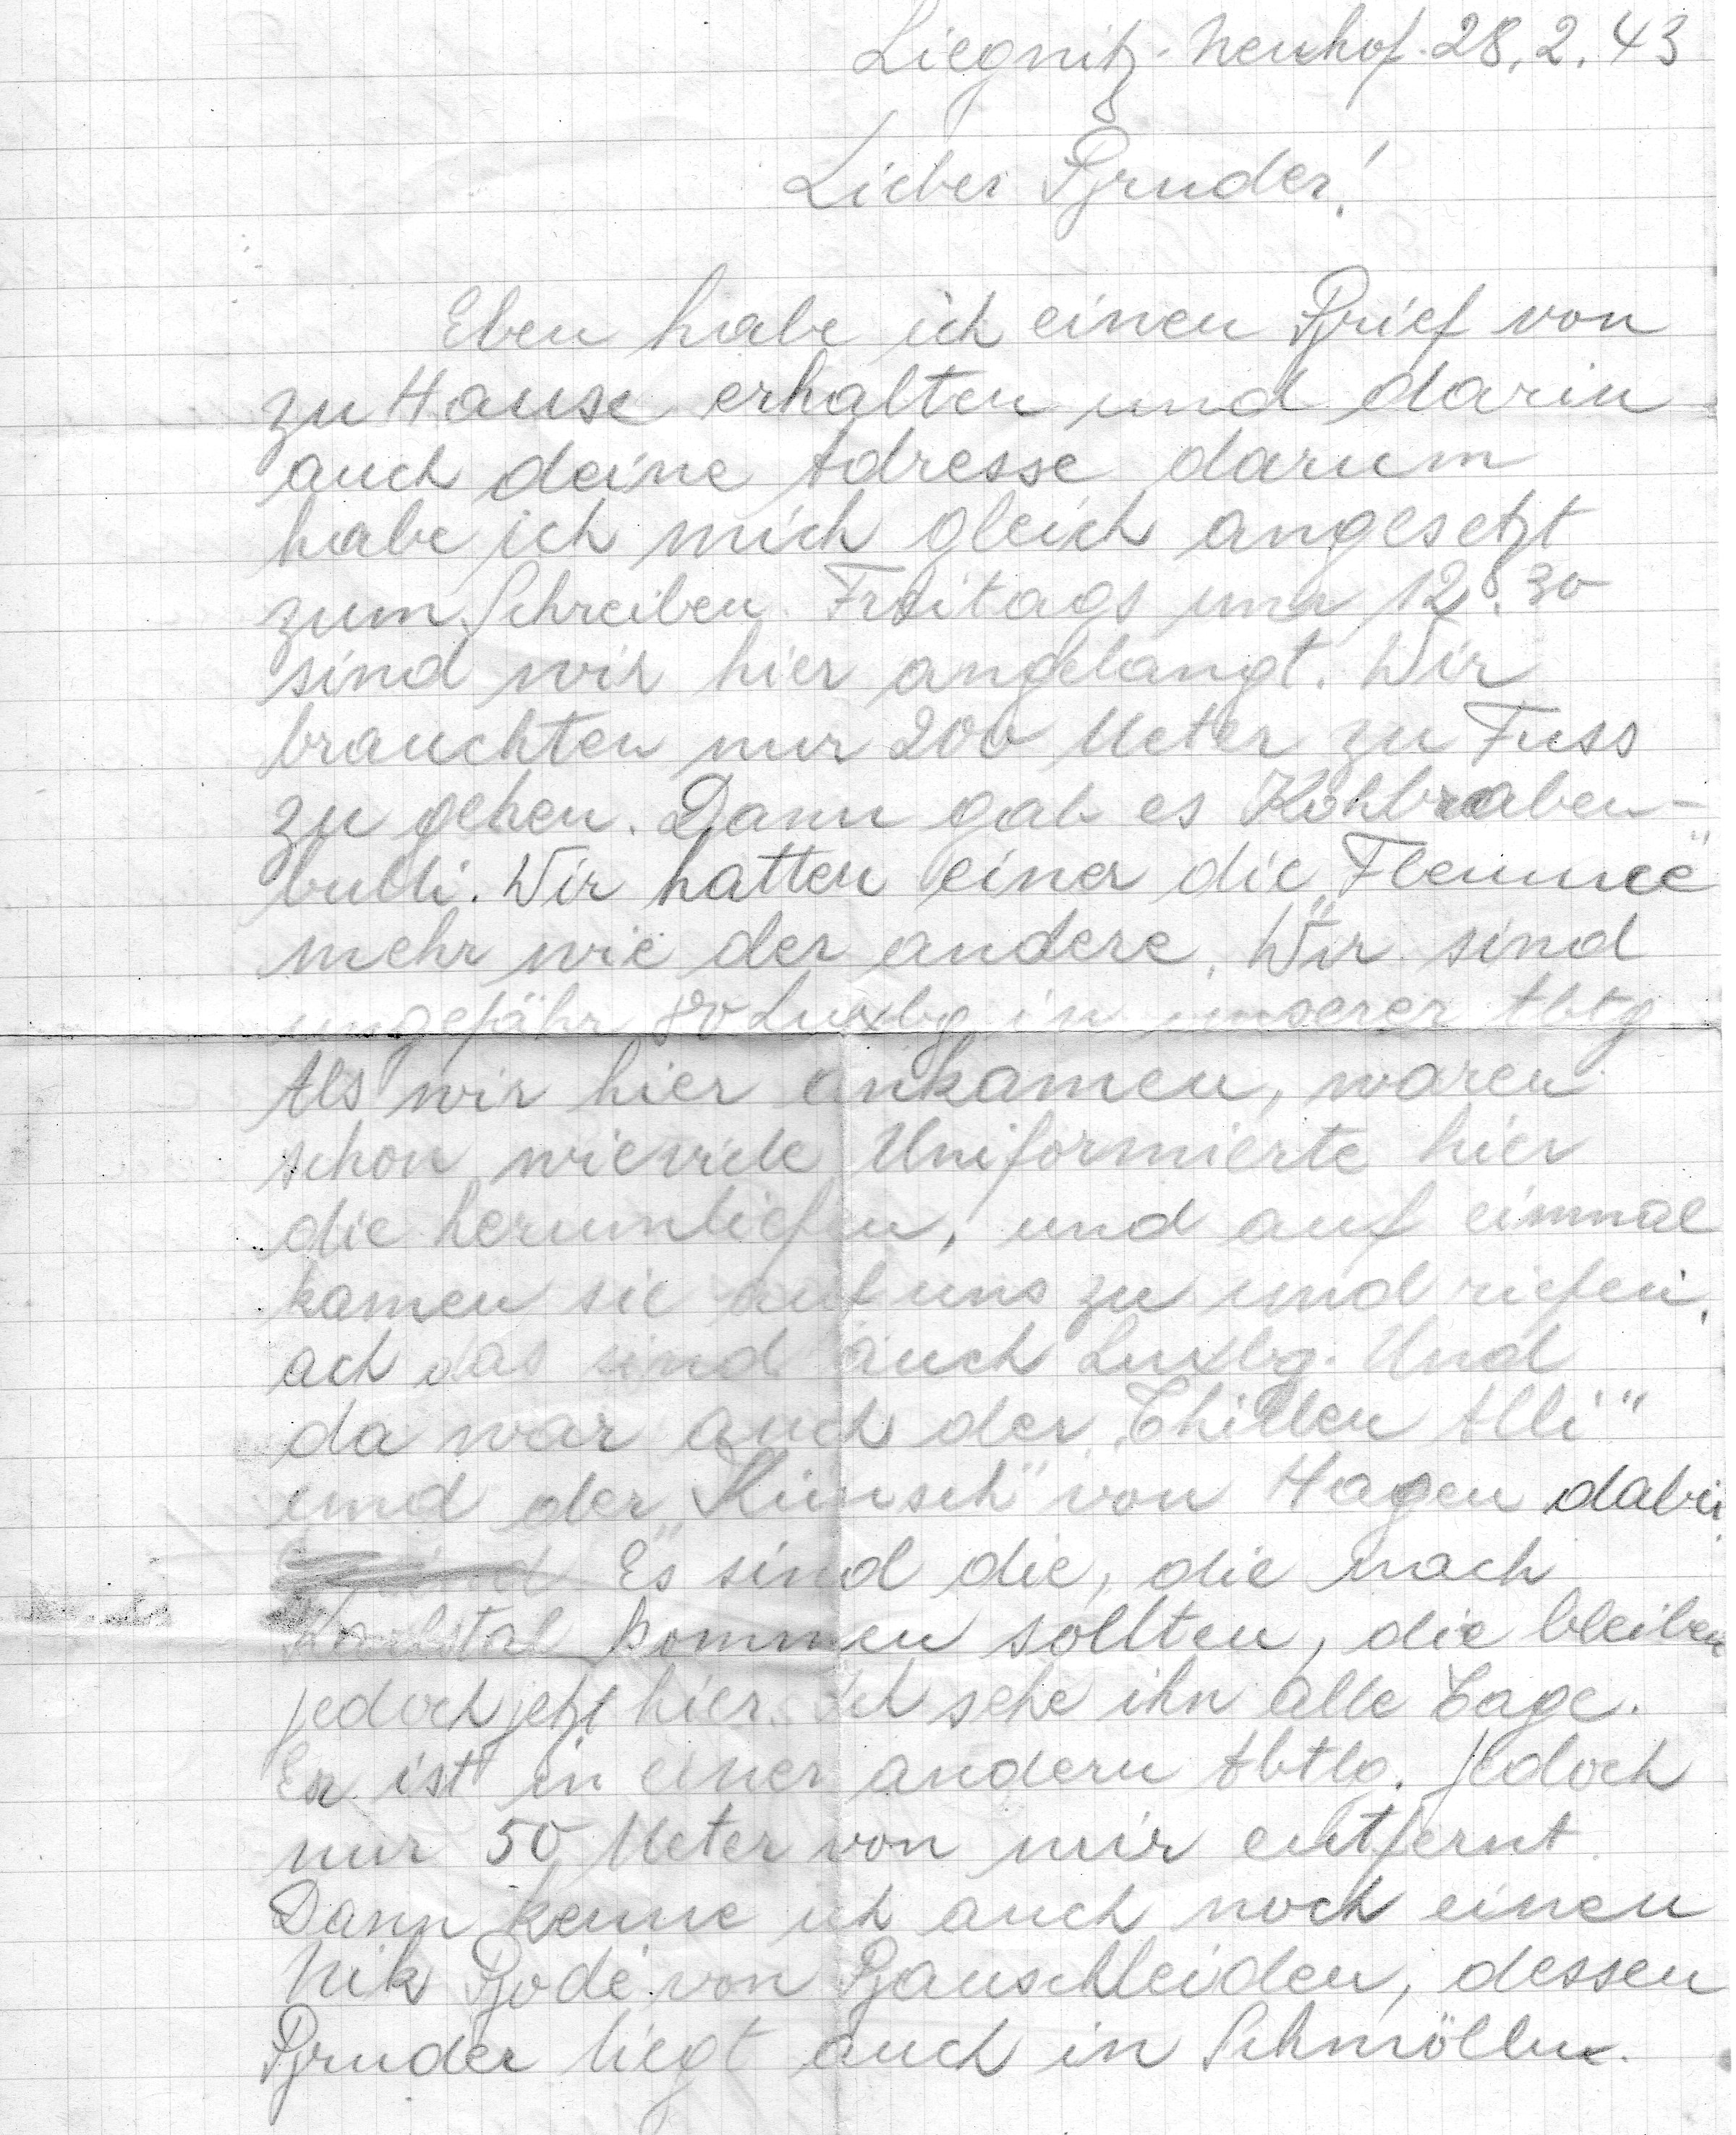 Liegnitz-Neuhof. 28.2.43
Lieber Bruder!
Eben habe ich einen Brief von
zu Hause erhalten und darin
auch deine Adresse darum
habe ich mich gleich angesetzt
zum Schreiben. Freitags um 12.30
sind wir hier angelangt. Wir
brauchten nur 200 Meter zu Fuss
zu gehen. Dann gab es Kohlraben-
bulli. Wir hatten einer die „Flemmee“
mehr wie der andere. Wir sind
ungefähr 80 Luxbg in unserer Abtg
Als wir hier ankamen, waren
schon wieviele Uniformierte hier
die herumliefen, und auf einmal
kamen sie auf uns zu und riefen,
ach das sind auch Luxbg. Und
da war auch der „Thillen Alli“
und der „Künsch“ von Hagen dabei
Es sind die, die nach
kommen sollten, die bleiben
jedoch jetzt hier. Ich sehe ihn alle Tage.
Er ist in einer andern Abtlg. jedoch
nur 50 Meter von mir entfernt.
Dann kenne ich auch noch einen
Nik Bodé von Bauschleiden, dessen
Bruder liegt auch in Schmölln.